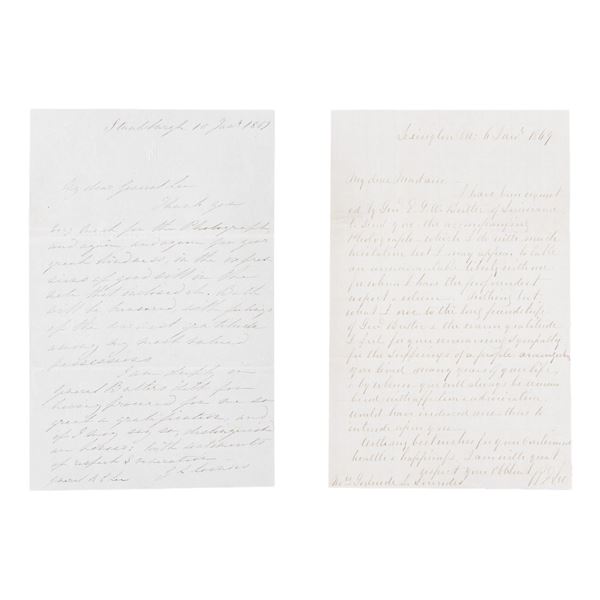 Staatsburgh 10 Jany 1869
My dear General Lee
Thank you
very much for the Photograph,
and again and again for your
great kindness, in the expres-
sions of good will in the
note that enclosed it. Both
will be treasured with feelings
of the sincerest gratitude
among my most valued
possessions
I am deeply in
General Butlers debt for
having procured for me so
great a gratification, and
if I may say so, distinguish-
ed honour; with sentiments
of respect & veneration
General R E Lee
Lexington Va: 6 Jany 1869
My dear Madam
I have been request
ed by Genl E. G. W. Butler of Louisiana
to send you the accompanying
Photograph which I do with much
hesitation lest I may appear to take
an unwarrantable liberty with one
for whom I have the profoundest
respect & esteem. Nothing but
what I owe to the long friendship
of Genl Butler & the warm gratitude
I feel for your unwearied sympathy
for the sufferings of a people among whom
you lived many years of your life,
& by whom you will always be remem
bered with affection & admiration
could have induced me thus to
intrude upon you.
With my best wishes for your continued
health & happiness, I am with great
respect your Obt Servt
R E Lee
Mrs Gertrude L. Lowndes